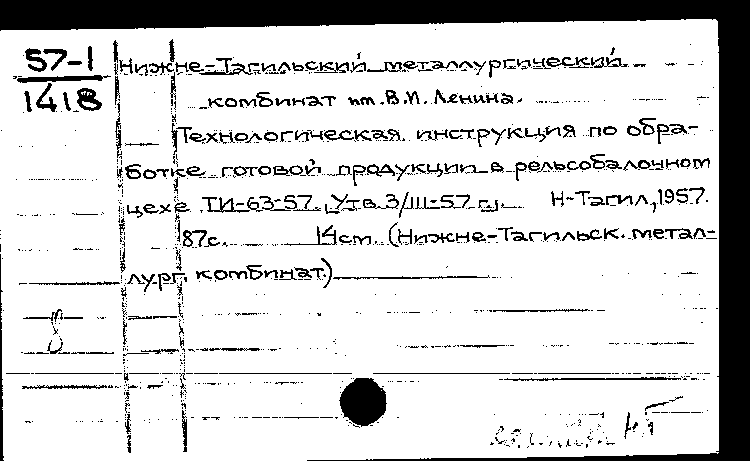 57-1
1418
Нижне-Тагильский металлургический
комбинат им. В.И. Ленина.
Технологическая инструкция по обра-
ботке готовой продукции в рельсобалочном
цехе ТИ-63-57. [Утв. 3/III-57 г.]. Н-Тагил, 1957.
87с. 14см. (Нижне-Тагильск. метал-
лург. комбинат.)
8
НТ